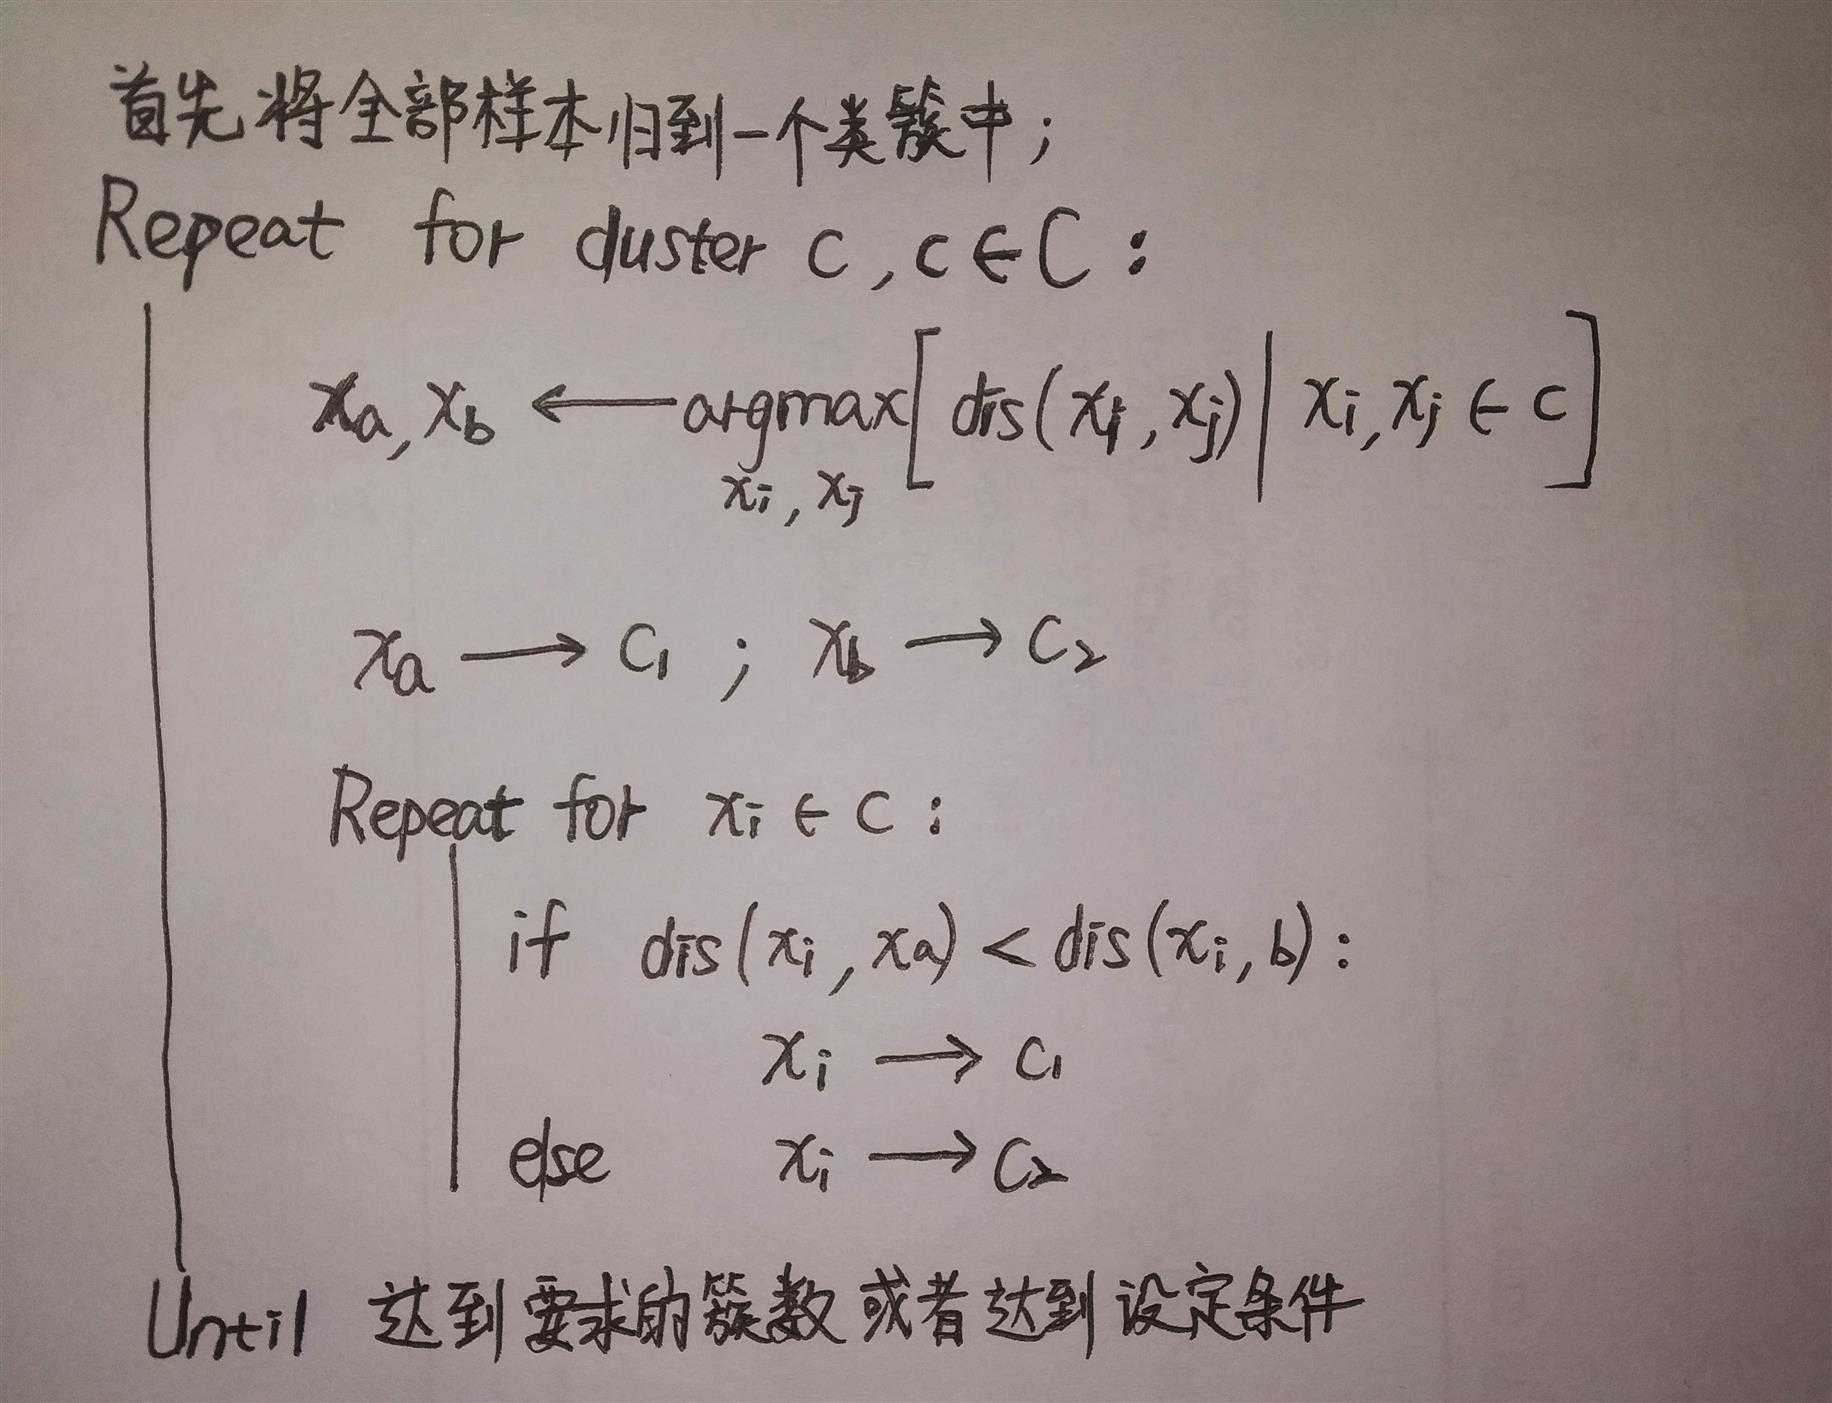 首先将全部样本归到一个类簇中;
Repeat for cluster c, c∈C:
xa, xb ← argmax[dis(xi, xj) | xi, xj ∈ c]
xi, xj
xa → c1 ; xb → c2
Repeat for xi ∈ c:
if dis(xi, xa) < dis(xi, b):
xi → c1
else xi → c2
Until 达到要求的簇数或者达到设定条件